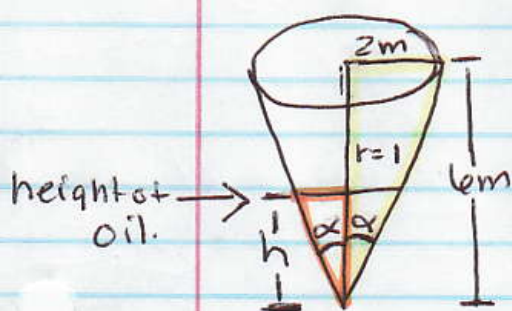 2m
r=1
6m
height of
oil.
h
α α